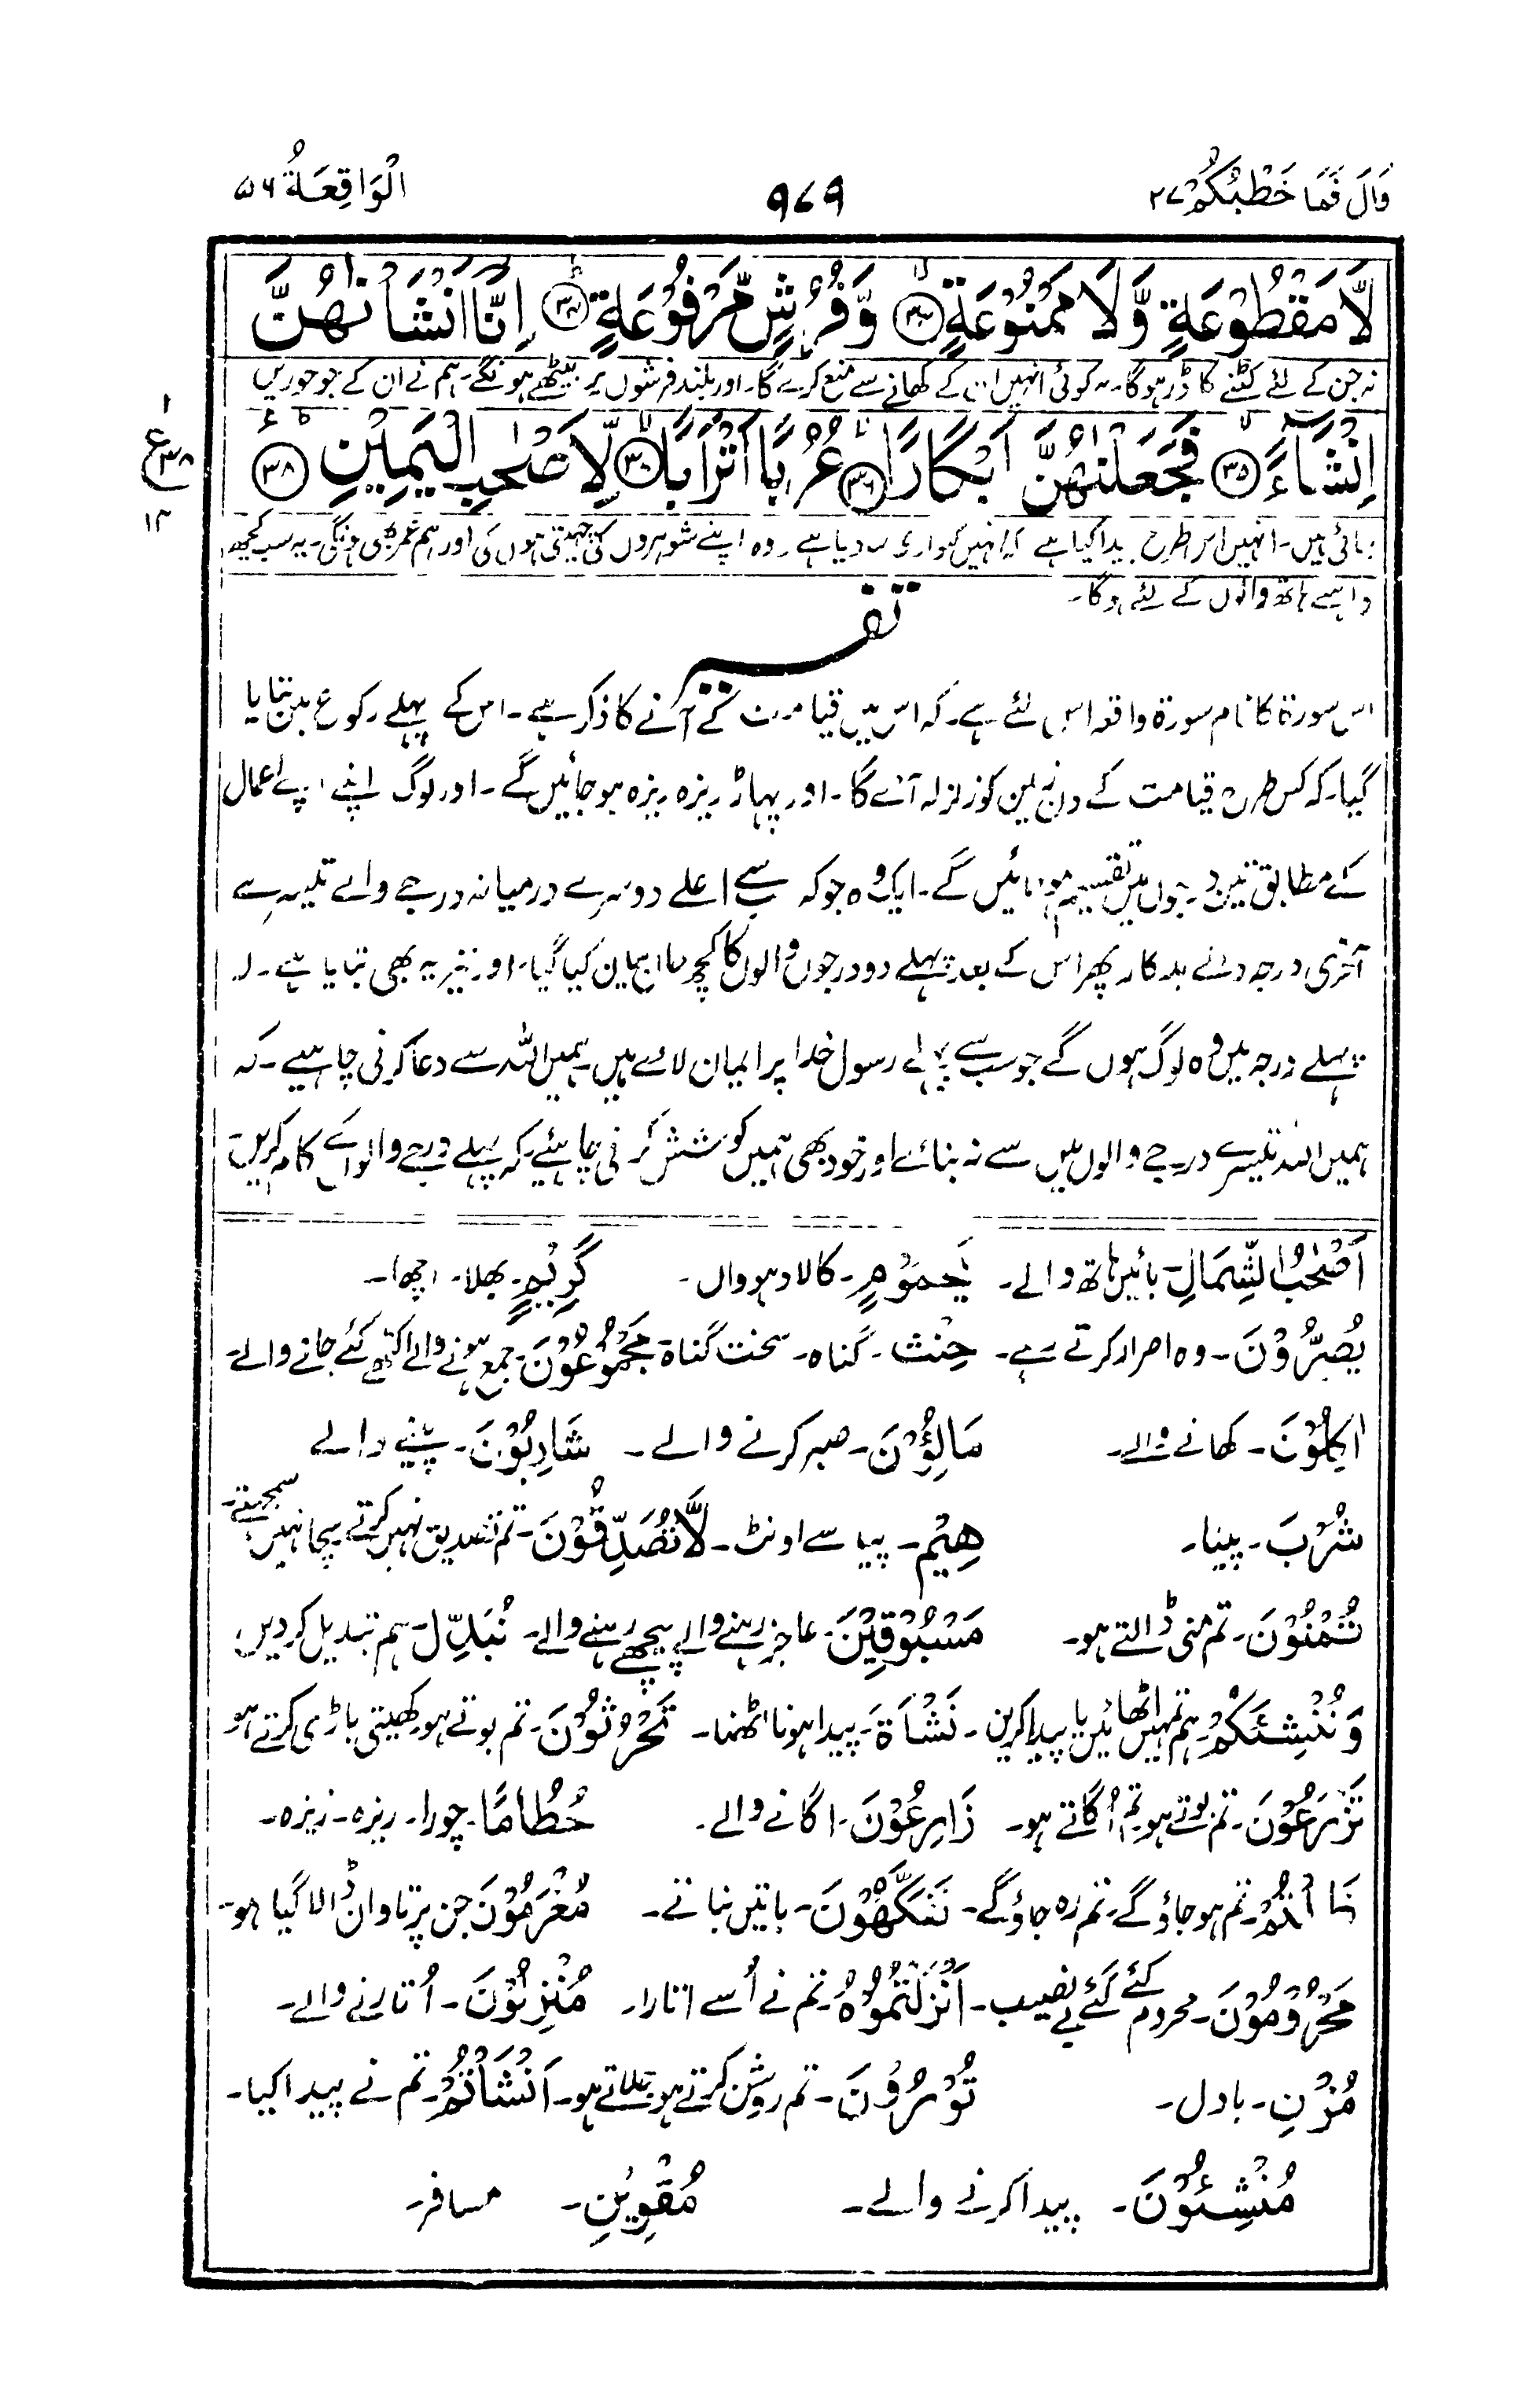 قَالَ فَمَا خَطْبُكُمْ ٢٧ ٩٧٩ الْوَاقِعَةُ ٥٦
لَّا مَقْطُوْعَةٍ وَّلَا مَمْنُوْعَةٍ ﴿٣٣﴾ وَّفُرُشٍ مَّرْفُوْعَةٍ ﴿٣٤﴾ اِنَّا اَنْشَاْنٰهُنَّ
نہ جن کے لئے کٹنے کا ڈر ہوگا۔ نہ کوئی انہیں ان کے کھانے سے منع کرے گا۔ اور بلند فرشوں پر بیٹھے ہونگے۔ ہم نے ان کے جو حوریں
اِنْشَآءً ﴿٣٥﴾ فَجَعَلْنٰهُنَّ اَبْكَارًا ﴿٣٦﴾ عُرُبًا اَتْرَابًا ﴿٣٧﴾ لِّاَصْحٰبِ الْيَمِيْنِ ﴿٣٨﴾
ع
بنائی ہیں۔ انہیں اس طرح پیدا کیا ہے کہ انہیں کنواری بنا دیا ہے۔ وہ اپنے شوہروں کی چہیتی ہوں گی اور ہم عمر بھی ہونگی۔ یہ سب کچھ
داہنے ہاتھ والوں کے لئے ہوگا۔
تفسیر
اس سورۃ کا نام سورۃ واقعہ اس لئے ہے۔ کہ اس میں قیامت کے آنے کا ذکر ہے۔ اس کے پہلے رکوع میں بتایا
گیا۔ کہ کس طرح قیامت کے دن زمین کو زلزلہ آئے گا۔ اور پہاڑ ریزہ ریزہ ہو جائیں گے۔ اور لوگ اپنے اپنے اعمال
کے مطابق تین درجوں میں تقسیم ہو جائیں گے۔ ایک وہ جو کہ سب سے اعلے دوسرے درمیانہ درجے والے تیسرے
آخری درجہ والے بدکار پھر اس کے بعد پہلے دو درجوں والوں کا کچھ سا بیان کیا گیا۔ اور نیز یہ بھی بتایا ہے۔ کہ
پہلے درجہ میں وہ لوگ ہوں گے جو سب سے پہلے رسول خدا پر ایمان لائے ہیں۔ ہمیں اللہ سے دعا کرنی چاہیے۔ کہ
ہمیں اللہ تیسرے درجے والوں میں سے نہ بنائے اور خود بھی ہمیں کوشش کرنی چاہئیے۔ کہ پہلے درجے والوں کے کام کریں
اَصْحٰبُ الشِّمَالِ۔ بائیں ہاتھ والے۔ يَحْمُوْمٍ۔ کالا دھوواں۔ كَرِيْمٍ۔ بھلا۔ اچھا۔
يُصِرُّوْنَ۔ وہ اصرار کرتے ہے۔ حِنْث۔ گناہ۔ سخت گناہ مَجْمُوْعُوْنَ۔ جمع ہونے والے اکٹھے کئے جانے والے۔
اٰكِلُوْنَ۔ کھانے والے۔ مَالِؤُنَ۔ صبر کرنے والے۔ شَارِبُوْنَ۔ پینے والے
شُرْبَ۔ پینا۔ هِيْم۔ پیاسے اونٹ۔ لَا تُصَدِّقُوْنَ۔ تم تصدیق نہیں کرتے سچا نہیں سمجھتے۔
تُمْنُوْنَ۔ تم منی ڈالتے ہو۔ مَسْبُوْقِيْنَ۔ عاجز رہنے والے پیچھے رہنے والے۔ نُبَدِّلَ۔ ہم تبدیل کر دیں،
وَنُنْشِئَكُمْ۔ ہم تمہیں اٹھائیں یا پیدا کریں۔ نَشْاَةَ۔ پیدا ہونا اٹھنا۔ تَحْرُثُوْنَ۔ تم بوتے ہو کھیتی باڑی کرتے ہو
تَزْرَعُوْنَ۔ تم بوتے ہو تم اُگاتے ہو۔ زَارِعُوْنَ۔ اگانے والے۔ حُطَامًا۔ چورا۔ ریزہ۔ ریزہ۔
تم ہو جاؤ گے۔ تم رہ جاؤ گے۔ تَفَكَّهُوْنَ۔ باتیں بناتے۔ مُغْرَمُوْنَ۔ جن پر تاوان ڈالا گیا ہو۔
مَحْرُوْمُوْنَ۔ محروم کئے گئے بے نصیب۔ اَنْزَلْتُمُوْهُ۔ تم نے اُسے اتارا۔ مُنْزِلُوْنَ۔ اُتارنے والے۔
مُزْنِ۔ بادل۔ تُوْرُوْنَ۔ تم روشن کرتے ہو جلاتے ہو۔ اَنْشَاْتُمْ۔ تم نے پیدا کیا۔
مُنْشِئُوْنَ۔ پیدا کرنے والے۔ مُقْوِيْنِ۔ مسافر۔